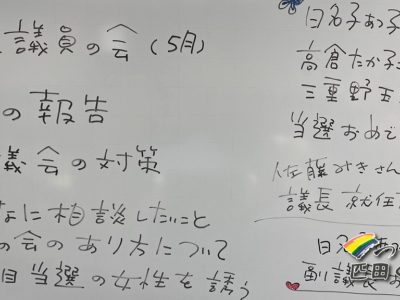 議員の会（5月）
の報告
議会の対策
なに相談したいこと
の会のあり方について
目当選の女性を誘う
日名子あつ子
高倉たか子
三重野玉
当選おめで
佐藤みきさん
議長 就任
日名子あ
副議長